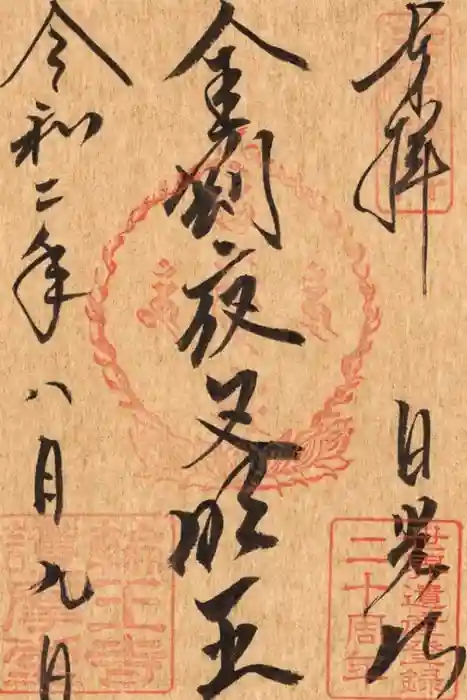 奉拝
日光山
金剛夜叉明王
令和二年
八月九日
世界遺産登録
二十周年
輪王寺
護摩堂